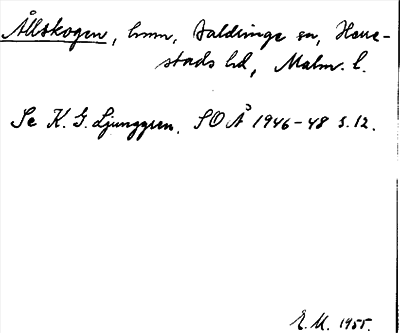 Ållskogen, hmn, Baldringe sn, Herre-
stads hd, Malm. l.
Se K. G. Ljunggren. SOÅ 1946-48 s. 12.
E. M. 1955.